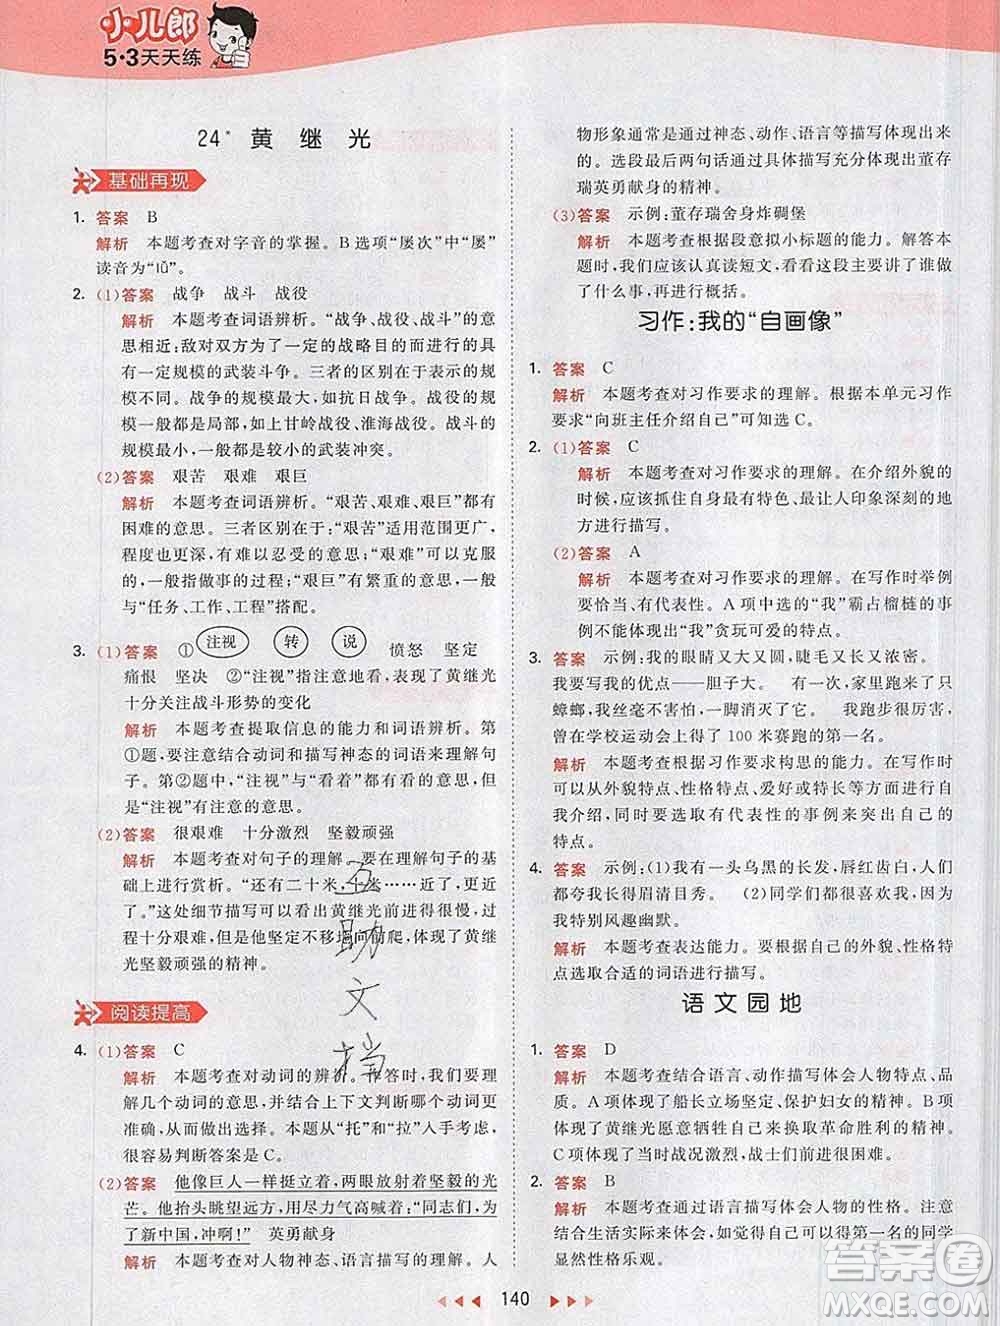 小儿郎
5·3天天练
24* 黄继光
基础再现
1. 答案 B
解析 本题考查对字音的掌握。B选项“屡次”中“屡”
读音为“lǚ”。
2. (1)答案 战争 战斗 战役
解析 本题考查词语辨析。“战争、战役、战斗”的意
思相近：敌对双方为了一定的战略目的而进行的具
有一定规模的武装斗争。三者的区别在于表示的规
模不同。战争的规模最大，如抗日战争。战役的规
模一般都是局部，如上甘岭战役、淮海战役。战斗的
规模最小，一般都是较小的武装冲突。
(2)答案 艰苦 艰难 艰巨
解析 本题考查词语辨析。“艰苦、艰难、艰巨”都有
困难的意思。三者区别在于：“艰苦”适用范围更广，
程度也更深，有难以忍受的意思；“艰难”可以克服
的，一般指做事的过程；“艰巨”有繁重的意思，一般
与“任务、工作、工程”搭配。
3. (1)答案 ①注视 转 说 愤怒 坚定
痛恨 坚决 ②“注视”指注意地看，表明了黄继光
十分关注战斗形势的变化
解析 本题考查提取信息的能力和词语辨析。第
①题，要注意结合动词和描写神态的词语来理解句
子。第②题中，“注视”与“看着”都有看的意思，但
是“注视”有注意的意思。
(2)答案 很艰难 十分激烈 坚毅顽强
解析 本题考查对句子的理解。要在理解句子的基
础上进行赏析。“还有二十米，十米……近了，更近
了。”这处细节描写可以看出黄继光前进得很慢，过
程十分艰难，但他坚定不移地向前爬，体现了黄继
光坚毅顽强的精神。
阅读提高
4. (1)答案 C
解析 本题考查对动词的辨析。作答时，我们要理
解几个动词的意思，并结合上下文判断哪个动词更
准确，从而做出选择。本题从“托”和“拉”入手考虑，
很容易判断答案是C。
(2)答案 他像巨人一样挺立着，两眼放射着坚毅的光
芒。他抬头眺望远方，用尽力气高喊着：“同志们，为
了新中国，冲啊！” 英勇献身
解析 本题考查对人物神态、语言描写的理解。人
物形象通常是通过神态、动作、语言等描写体现出来
的。选段最后两句话通过具体描写充分体现了董存
瑞英勇献身的精神。
(3)答案 示例：董存瑞舍身炸碉堡
解析 本题考查根据段意拟小标题的能力。解答本
题时，我们应该认真读短文，看看这段主要讲了谁做
了什么事，再进行概括。
习作：我的“自画像”
1. 答案 C
解析 本题考查对习作要求的理解。根据本单元习作
要求“向班主任介绍自己”可知选C。
2. (1)答案 C
解析 本题考查对习作要求的理解。在介绍外貌的
时候，应该抓住自身最有特色、最让人印象深刻的地
方进行描写。
(2)答案 A
解析 本题考查对习作要求的理解。在写作时举例
要恰当，有代表性。A项中选的“我”霸占榴梿的事
例不能体现出“我”贪玩可爱的特点。
3. 答案 示例：我的眼睛又大又圆，睫毛又长又浓密。
我要写我的优点——胆子大。 有一次，家里跑来一只
蟑螂，我丝毫不害怕，一脚消灭了它。 我跑步很厉害，
曾在学校运动会上得了100米赛跑的第一名。
解析 本题考查根据习作要求构思的能力。在写作时
可以从外貌特点、性格特点、爱好或特长等方面进行自
我介绍，同时要选取有代表性的事例来突出自己的
特点。
4. 答案 示例：(1)我有一头乌黑的长发，唇红齿白，人们
都夸我长得眉清目秀。 (2)同学们都很喜欢我，因为
我特别风趣幽默。
解析 本题考查表达能力。要根据自己的外貌、性格特
点选取合适的词语进行描写。
语文园地
1. 答案 D
解析 本题考查结合语言、动作描写体会人物特点、品
质。A项体现了船长立场坚定、保护妇女的精神。B项
体现了黄继光愿意牺牲自己来换取革命胜利的精神。
C项体现了当时战况激烈，战士们处境困难。
2. 答案 B
解析 本题考查通过语言描写体会人物的性格。注意
结合生活实际来体会，如总是觉得自己有希望的同学
显然性格乐观。
五
助
文
档
答案圈
MXQE.COM
140